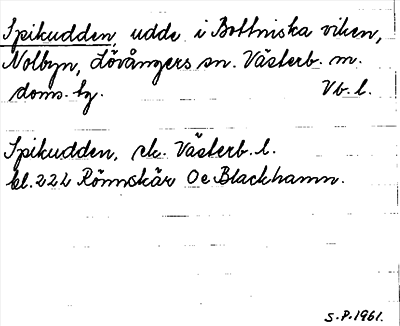 Spikudden, udde i Bottniska viken,
Nolbyn, Lövångers sn. Västerb. m.
doms. hg. Vb. l.
Spikudden, ek. Västerb. l.
bl. 222 Rönnskär Oc Blackhamn.
S.P. 1961.